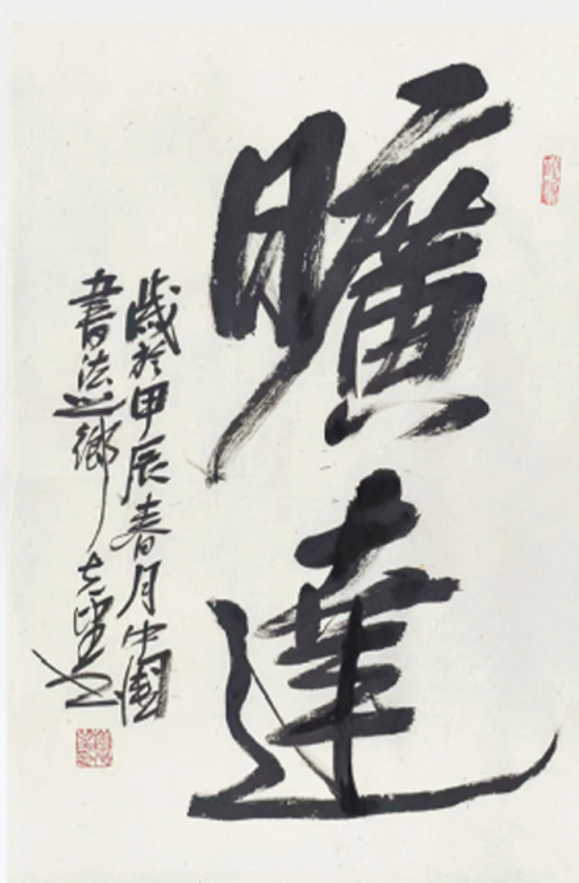 曠達
歲於甲辰春月中國
書法之鄉志望書